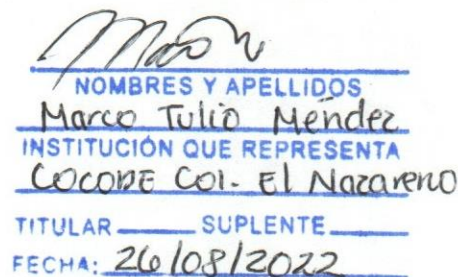 NOMBRES Y APELLIDOS
Marco Tulio Méndez
INSTITUCIÓN QUE REPRESENTA
COCODE COl. El Nazareno
TITULAR______ SUPLENTE______
FECHA: 26/08/2022